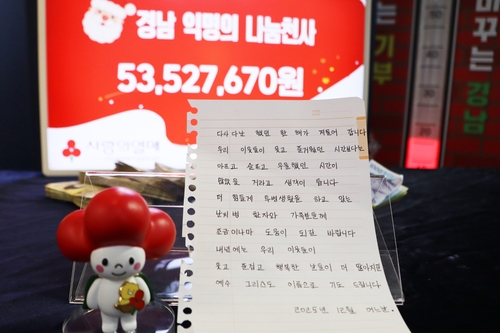 경남 익명의 나눔천사
53,527,670원
사랑의열매
다사다난 했던 한 해가 저물어 갑니다
우리 이웃들이 웃고 즐거웠던 시간보다는
아프고 슬프고 우울했던 시간이
많았을 거라고 생각이 듭니다
더 힘들게 투병생활을 하고 있는
난치병 환자와 가족분들께
조금이나마 도움이 되길 바랍니다
내년에는 우리 이웃들이
웃고 즐겁고 행복한 날들이 더 많아지길
예수 그리스도 이름으로 기도 드립니다
2025년 12월 어느날.
기부
바꾸는 경남